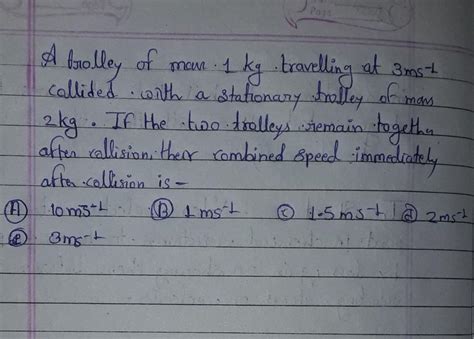 A trolley of mass 1 kg travelling at 3ms-1
collided with a stationary trolley of mass
2kg. If the two trolleys remain together
after collision, their combined speed immediately
after collision is -
(A) 10ms-1 (B) 1 ms-1 (C) 1.5 ms-1 (d) 2ms-1
(e) 3ms-1